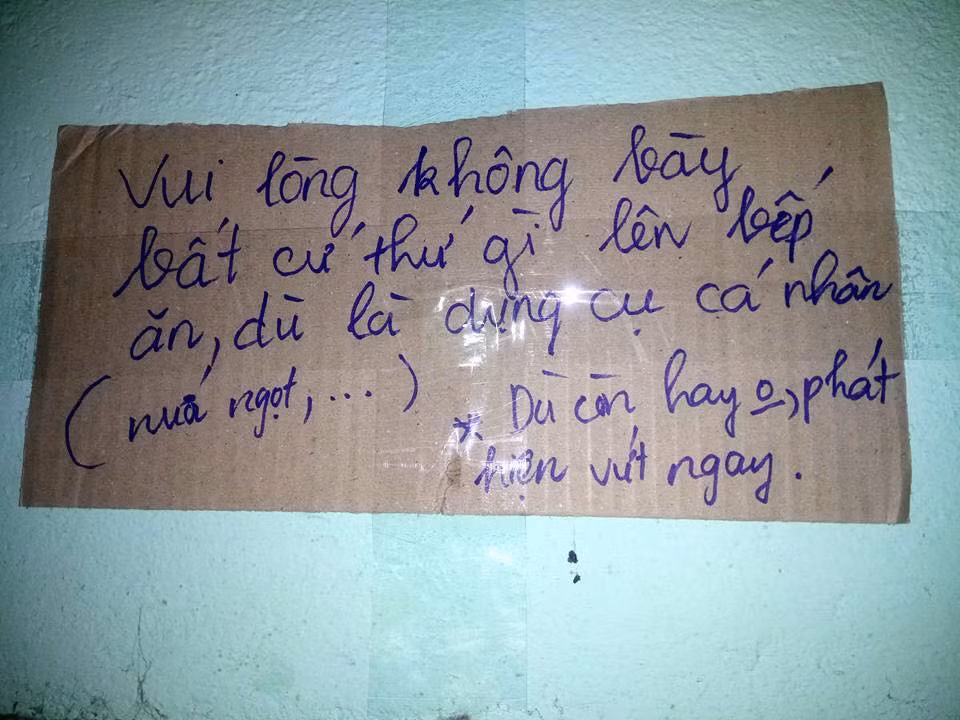 Vui lòng không bày
bất cứ thứ gì lên bếp
ăn, dù là dụng cụ cá nhân
(nướ ngọt, ...)
* Dù còn hay o, phát
hiện vứt ngay.